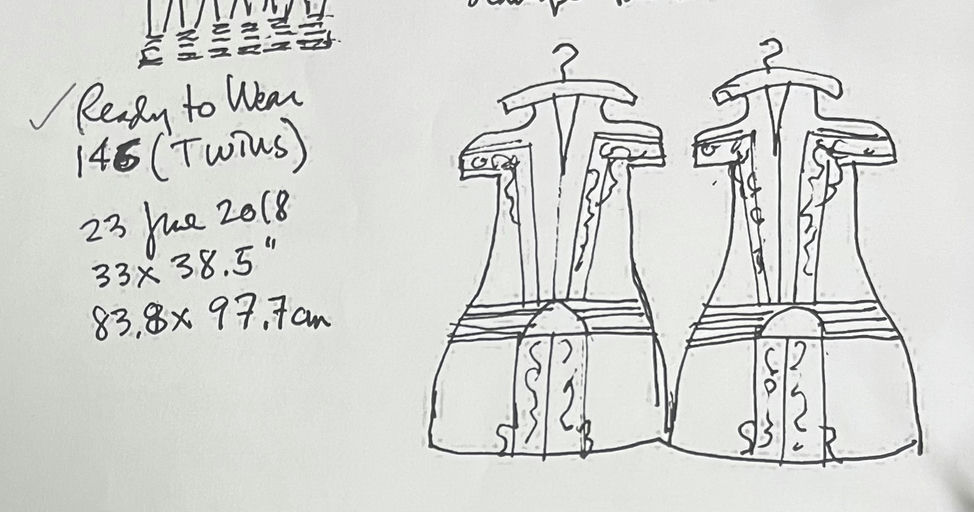 ✓ Ready to Wear
146 (Twins)
23 June 2018
33 x 38.5"
83.8 x 97.7 cm